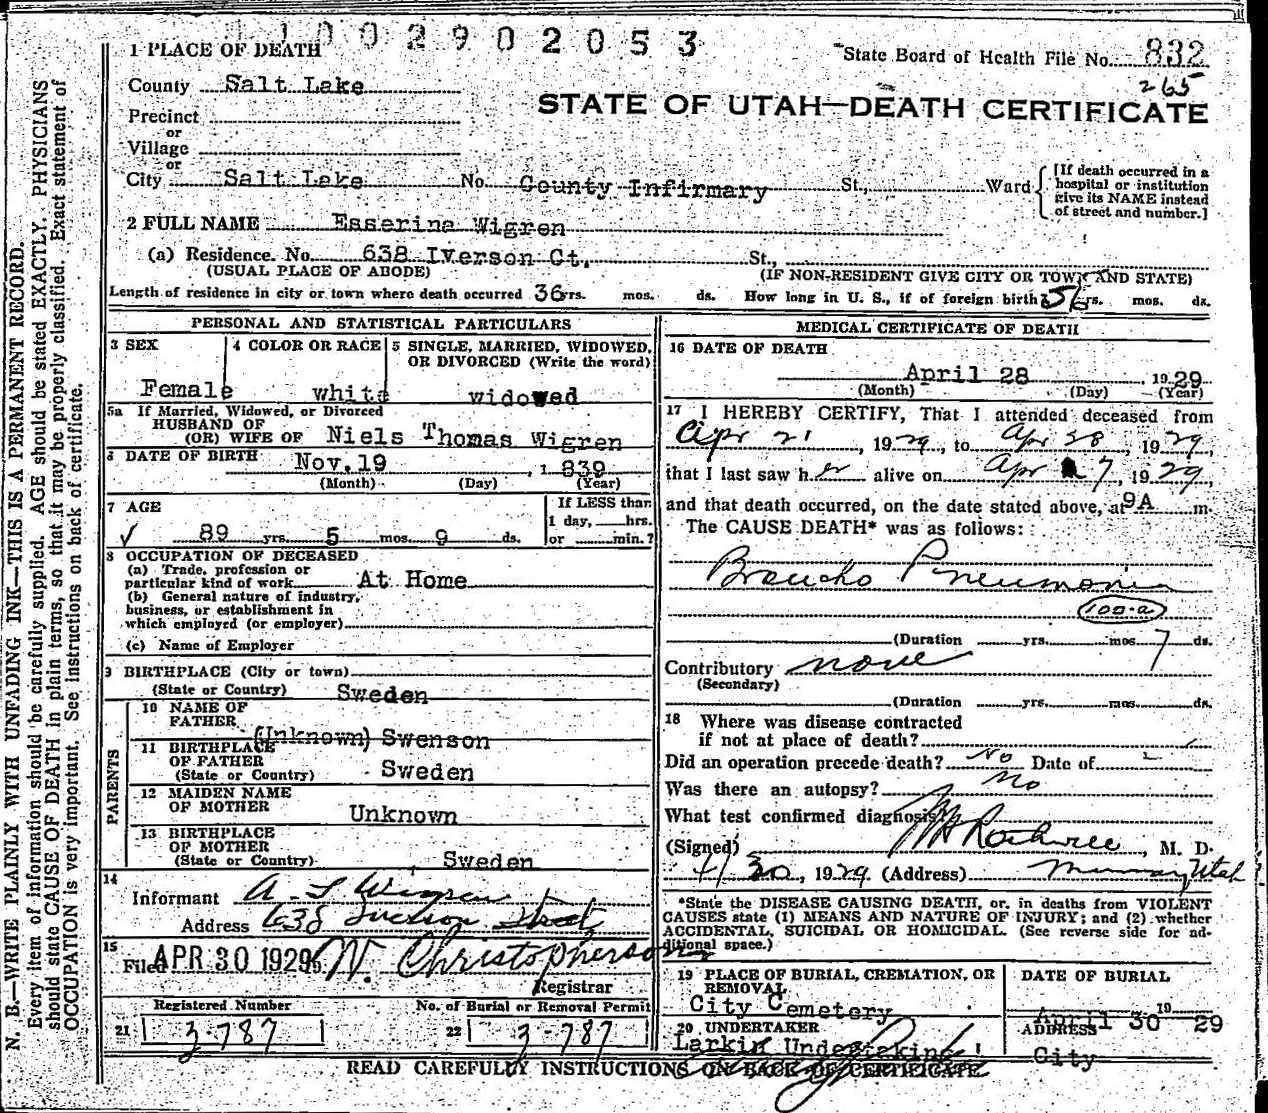 1002902053
1 PLACE OF DEATH
State Board of Health File No. 832
265
County Salt Lake
STATE OF UTAH—DEATH CERTIFICATE
Precinct
or
Village
or
City Salt Lake No. County Infirmary St., Ward
[If death occurred in a
hospital or institution
give its NAME instead
of street and number.]
2 FULL NAME Esserina Wigren
(a) Residence. No. 638 Iverson Ct. St.,
(USUAL PLACE OF ABODE) (IF NON-RESIDENT GIVE CITY OR TOWN AND STATE)
Length of residence in city or town where death occurred 36 yrs. mos. ds. How long in U. S., if of foreign birth? 56 yrs. mos. ds.
PERSONAL AND STATISTICAL PARTICULARS
3 SEX 4 COLOR OR RACE 5 SINGLE, MARRIED, WIDOWED,
OR DIVORCED (Write the word)
Female white widowed
5a If Married, Widowed, or Divorced
HUSBAND OF
(OR) WIFE OF Niels Thomas Wigren
6 DATE OF BIRTH Nov. 19, 1839
(Month) (Day) (Year)
7 AGE If LESS than
1 day, hrs.
89 yrs. 5 mos. 9 ds. or min.?
8 OCCUPATION OF DECEASED
(a) Trade, profession or
particular kind of work At Home
(b) General nature of industry,
business, or establishment in
which employed (or employer)
(c) Name of Employer
9 BIRTHPLACE (City or town)
(State or Country) Sweden
PARENTS
10 NAME OF
FATHER (Unknown) Swenson
11 BIRTHPLACE
OF FATHER
(State or Country) Sweden
12 MAIDEN NAME
OF MOTHER Unknown
13 BIRTHPLACE
OF MOTHER
(State or Country) Sweden
14
Informant A. L. Wigren
Address 638 Iverson Street
15
Filed APR 30 1929 W. Christopherson
Registrar
Registered Number No. of Burial or Removal Permit
21 3-787 22 3-787
MEDICAL CERTIFICATE OF DEATH
16 DATE OF DEATH
April 28, 1929
(Month) (Day) (Year)
17 I HEREBY CERTIFY, That I attended deceased from
Apr 21, 1929, to Apr 28, 1929,
that I last saw her alive on Apr 27, 1929,
and that death occurred, on the date stated above, at 9A m.
The CAUSE DEATH* was as follows:
Broncho Pneumonia
100-a
(Duration yrs. mos. 7 ds.
Contributory none
(Secondary)
(Duration yrs. mos. ds.
18 Where was disease contracted
if not at place of death?
Did an operation precede death? No Date of
Was there an autopsy? No
What test confirmed diagnosis?
(Signed) Rockwell, M. D.
4/30, 1929. (Address) Murray, Utah
*State the DISEASE CAUSING DEATH, or, in deaths from VIOLENT
CAUSES state (1) MEANS AND NATURE OF INJURY; and (2) whether
ACCIDENTAL, SUICIDAL OR HOMICIDAL. (See reverse side for ad-
ditional space.)
19 PLACE OF BURIAL, CREMATION, OR DATE OF BURIAL
REMOVAL
City Cemetery April 30 1929
20 UNDERTAKER ADDRESS
Larkin Undertaking City
READ CAREFULLY INSTRUCTIONS ON BACK OF CERTIFICATE
N. B.—WRITE PLAINLY WITH UNFADING INK—THIS IS A PERMANENT RECORD.
Every item of information should be carefully supplied. AGE should be stated EXACTLY. PHYSICIANS
should state CAUSE OF DEATH in plain terms, so that it may be properly classified. Exact statement of
OCCUPATION is very important. See instructions on back of certificate.